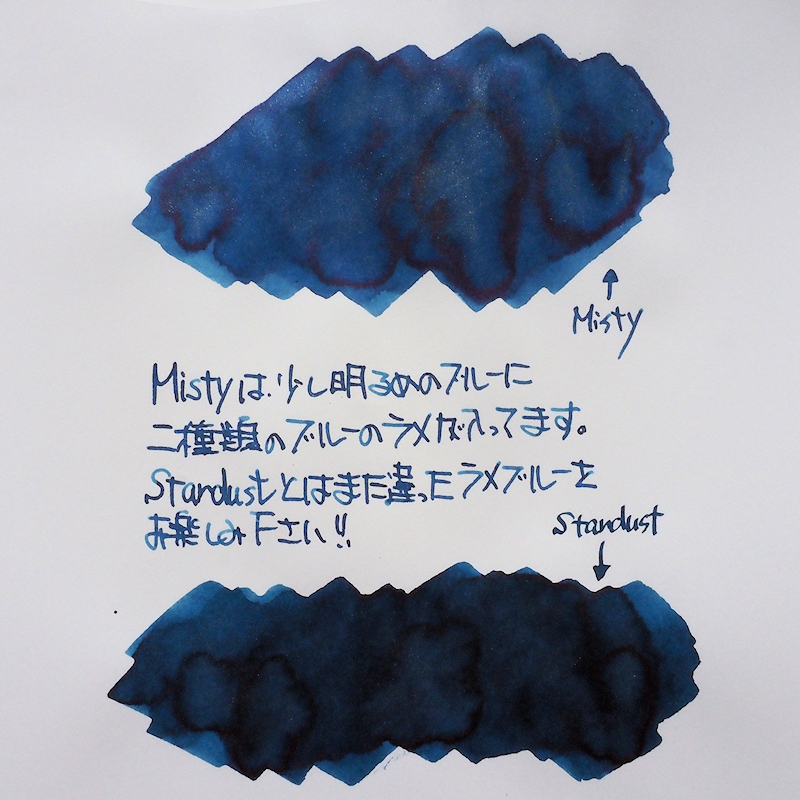 Misty
Mistyは少し明るめのブルーに
二種類のブルーのラメが入ってます。
Stardustとはまた違ったラメブルーを
お楽しみ下さい!!
Stardust